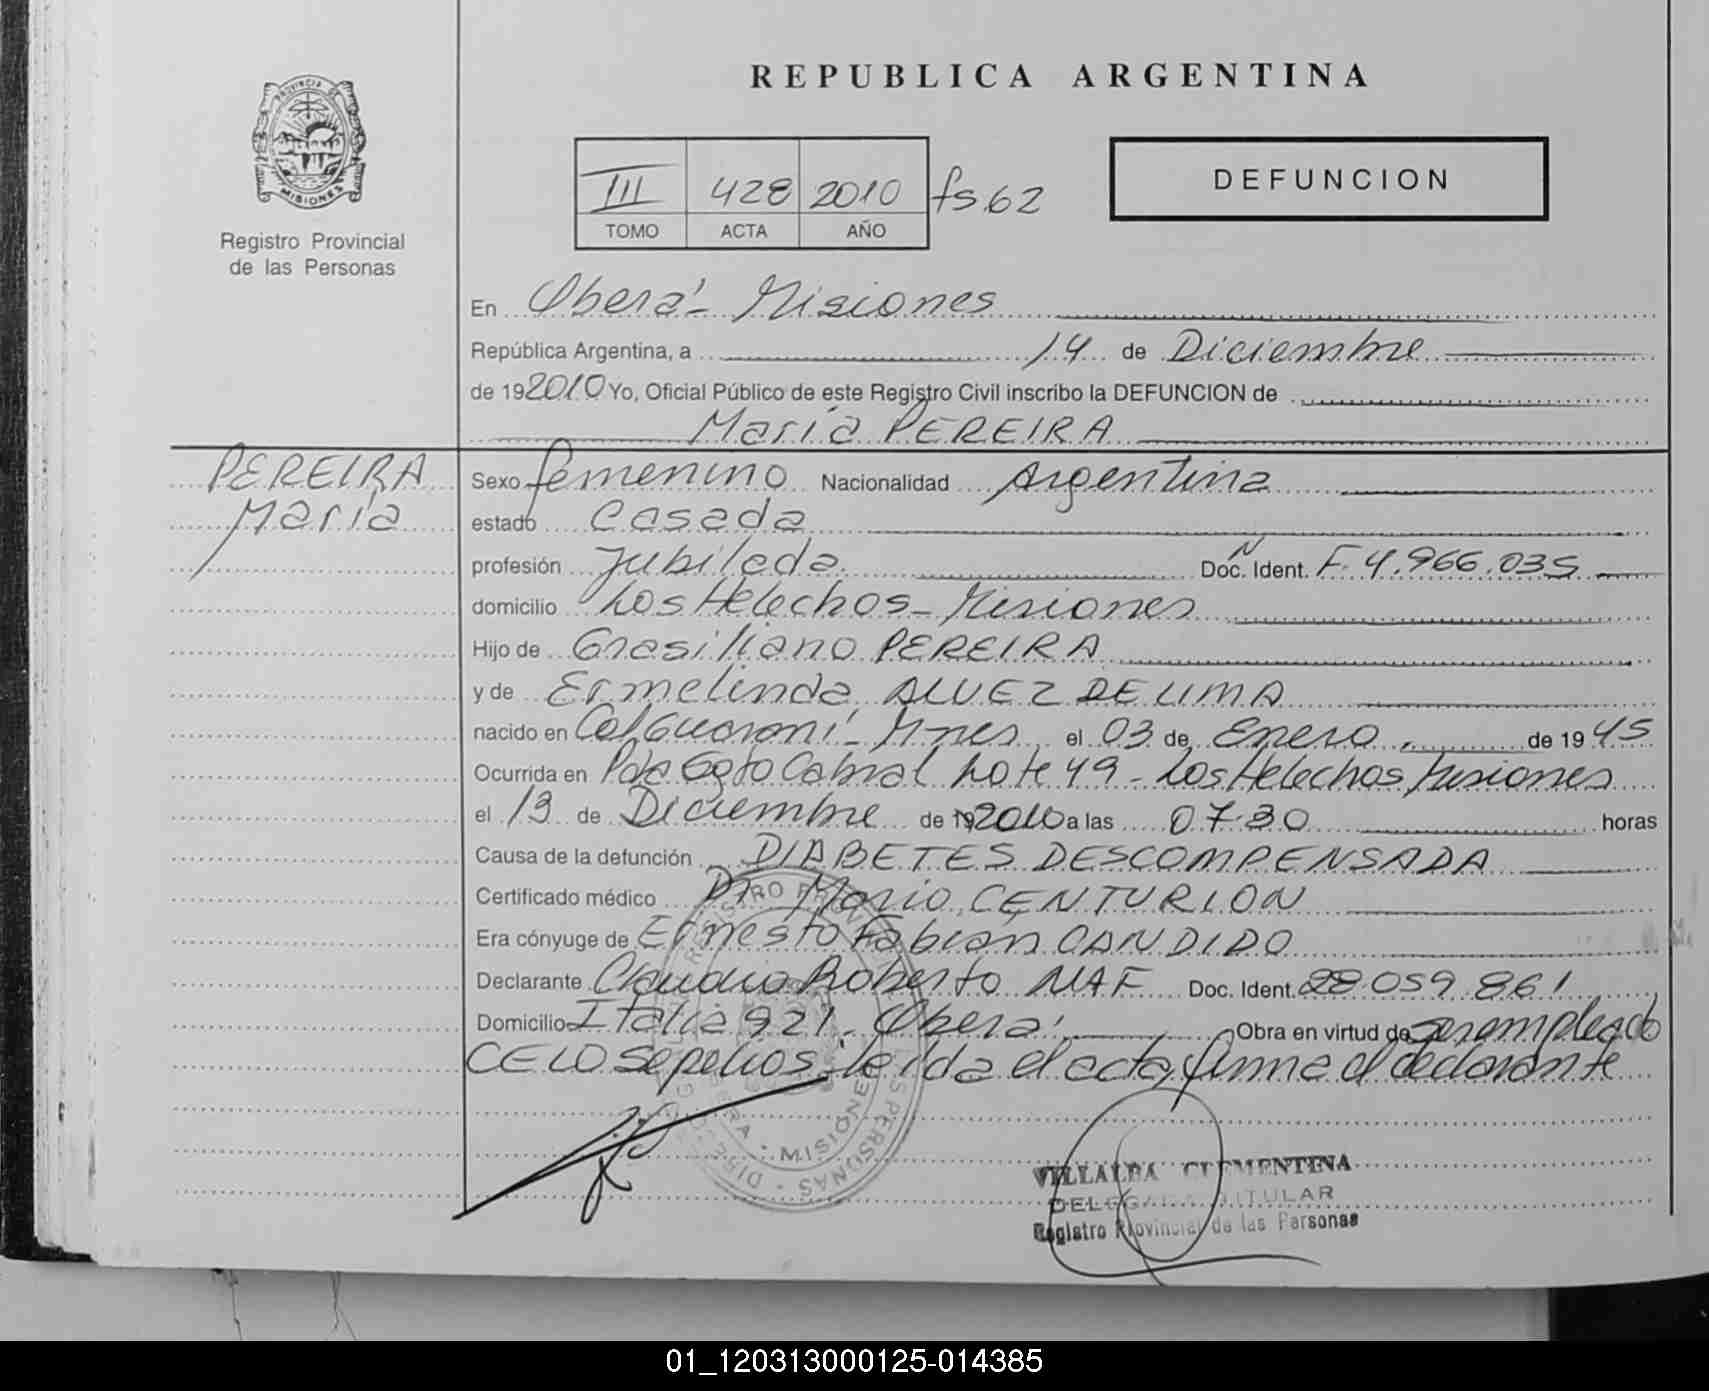 REPUBLICA ARGENTINA
PROVINCIA DE
MISIONES
Registro Provincial
de las Personas
III 428 2010 fs.62
TOMO ACTA AÑO
DEFUNCION
En Oberá - Misiones
República Argentina, a 14 de Diciembre
de 192010 Yo, Oficial Público de este Registro Civil inscribo la DEFUNCION de
María PEREIRA
PEREIRA
María
Sexo femenino Nacionalidad Argentina
estado Casada
profesión Jubilada Doc. Ident. F. 4.966.035
domicilio Los Helechos - Misiones
Hijo de Grasiliano PEREIRA
y de Ermelinda ALVEZ DE LIMA
nacido en Col Guaraní - Mnes el 03 de Enero de 1945
Ocurrida en Pda Goto Cabral Lote 49 - Los Helechos Misiones
el 13 de Diciembre de 192010 a las 07.30 horas
Causa de la defunción DIABETES DESCOMPENSADA
Certificado médico Dr. Mario CENTURION
Era cónyuge de Ernesto Fabián CANDIDO
Declarante Claudio Roberto NAF Doc. Ident. 28.059.861
Domicilio Italia 921 - Oberá Obra en virtud de ser empleado
CELO Sepelios. leída el acta, firma el declarante
VILLALBA CLEMENTINA
DELEGADA TITULAR
Registro Provincial de las Personas
01_120313000125-014385